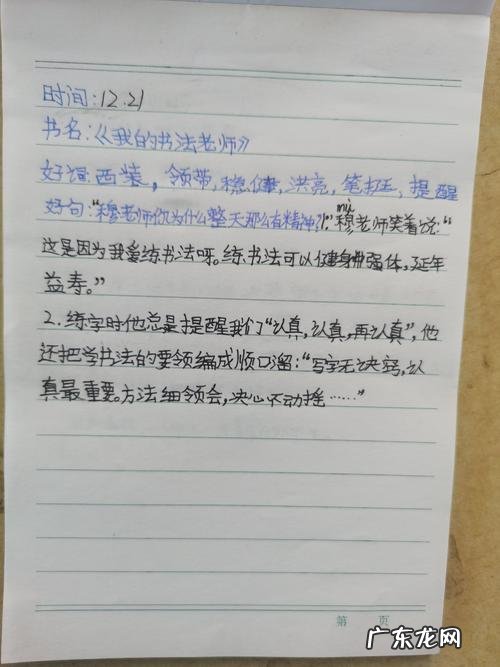 时间：12.21
书名：《我的书法老师》
好词：西装，领带，稳健，洪亮，笔挺，提醒
好句："穆老师你为什么整天那么有精神？"穆老师笑着说："
mù
这是因为我爱练书法呀。练书法可以健身强体，延年
益寿。"
2. 练字时他总是提醒我们"认真，认真，再认真"，他
还把学书法的要领编成顺口溜："写字无诀窍，认
真最重要。方法细领会，决心不动摇……"
第 页
广东龙网
www.gdlonga.com